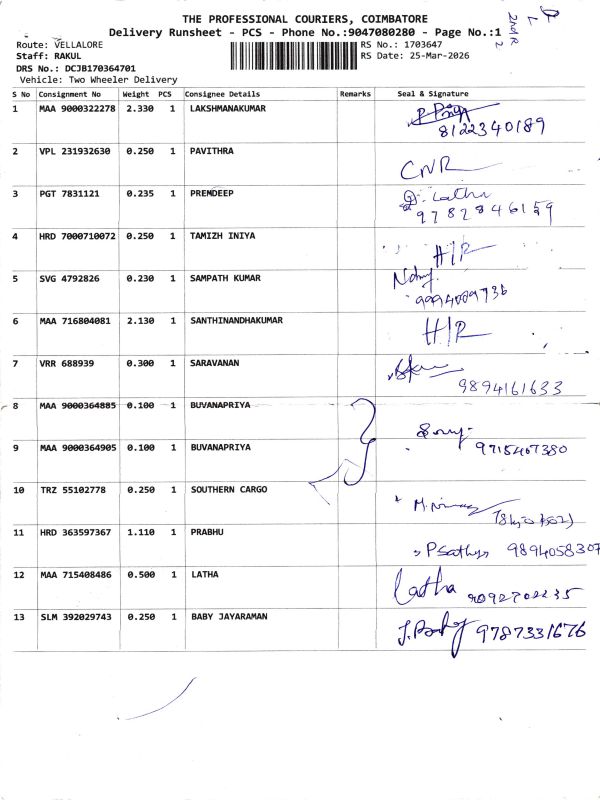 THE PROFESSIONAL COURIERS, COIMBATORE
Delivery Runsheet - PCS - Phone No.:9047080280 - Page No.:1
2nd R
2
Route: VELLALORE
RS No.: 1703647
Staff: RAKUL
RS Date: 25-Mar-2026
DRS No.: DCJB170364701
Vehicle: Two Wheeler Delivery
S No Consignment No Weight PCS Consignee Details Remarks Seal & Signature
1 MAA 9000322278 2.330 1 LAKSHMANAKUMAR
8122340189
2 VPL 231932630 0.250 1 PAVITHRA
CNR
3 PGT 7831121 0.235 1 PREMDEEP
Latha
9782846159
4 HRD 7000710072 0.250 1 TAMIZH INIYA
H/R
5 SVG 4792826 0.230 1 SAMPATH KUMAR
6 MAA 716804081 2.130 1 SANTHINANDHAKUMAR
H/R
7 VRR 688939 0.300 1 SARAVANAN
9894161633
8 MAA 9000364885 0.100 1 BUVANAPRIYA
9 MAA 9000364905 0.100 1 BUVANAPRIYA
9715467380
10 TRZ 55102778 0.250 1 SOUTHERN CARGO
11 HRD 363597367 1.110 1 PRABHU
P Sathya 9894058307
12 MAA 715408486 0.500 1 LATHA
Latha 9092702235
13 SLM 392029743 0.250 1 BABY JAYARAMAN
J. Baby 9787331676